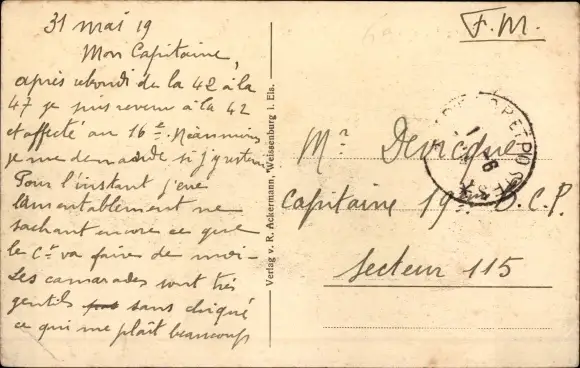 31 mai 19
Mon Capitaine,
après rebondi de la 42 à la
47 je suis revenu à la 42
et affecté au 16e. Néanmoins
je me demande si j'y resterai
Pour l'instant j'erre
lamentablement ne
sachant encore ce que
le Ct va faire de moi -
Les camarades sont très
gentils sans chiqué
ce qui me plaît beaucoup
Verlag v. R. Ackermann, Weissenburg i. Els.
F. M.
Mr Devicque
Capitaine 19e B.C.P.
Secteur 115
POSTES